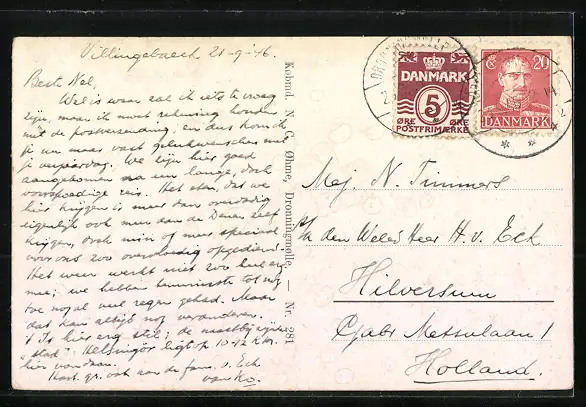 Villingebaek 21-9-'46.
Beste Nel,
Wel is waar zal ik iets te vroeg
zijn, maar ik moet rekening houden
met de postverzending; en dus kom ik
je nu maar vast gelukwenschen met
je verjaardag. We zijn hier goed
aangekomen na een lange, doch
voorspoedige reis. Het eten, dat we
hier krijgen is meer dan overdadig
eigenlijk ook meer dan de Denen zelf
krijgen, doch min of meer speciaal
voor ons zoo overvloedig opgediend.
Het weer werkt niet zoo heel erg
mee; we hebben tenminste tot nog
toe nogal veel regen gehad. Maar
dat kan altijd nog veranderen.
't Is hier erg stil; de meest bijzijnde
"stad" Helsingör ligt op 10-12 km.
hier vandaan.
Hart. gr. ook aan de fam. v. Eck
van
Kobmd. N. C. Øhme, Dronningmølle. — Nr. 281
DANMARK
5
ØRE ØRE
POSTFRIMÆRKE
20
DANMARK
Mej. N. Timmers
p/a den Weled Heer H. v. Eck
Hilversum
Metsulaan 1
Holland.